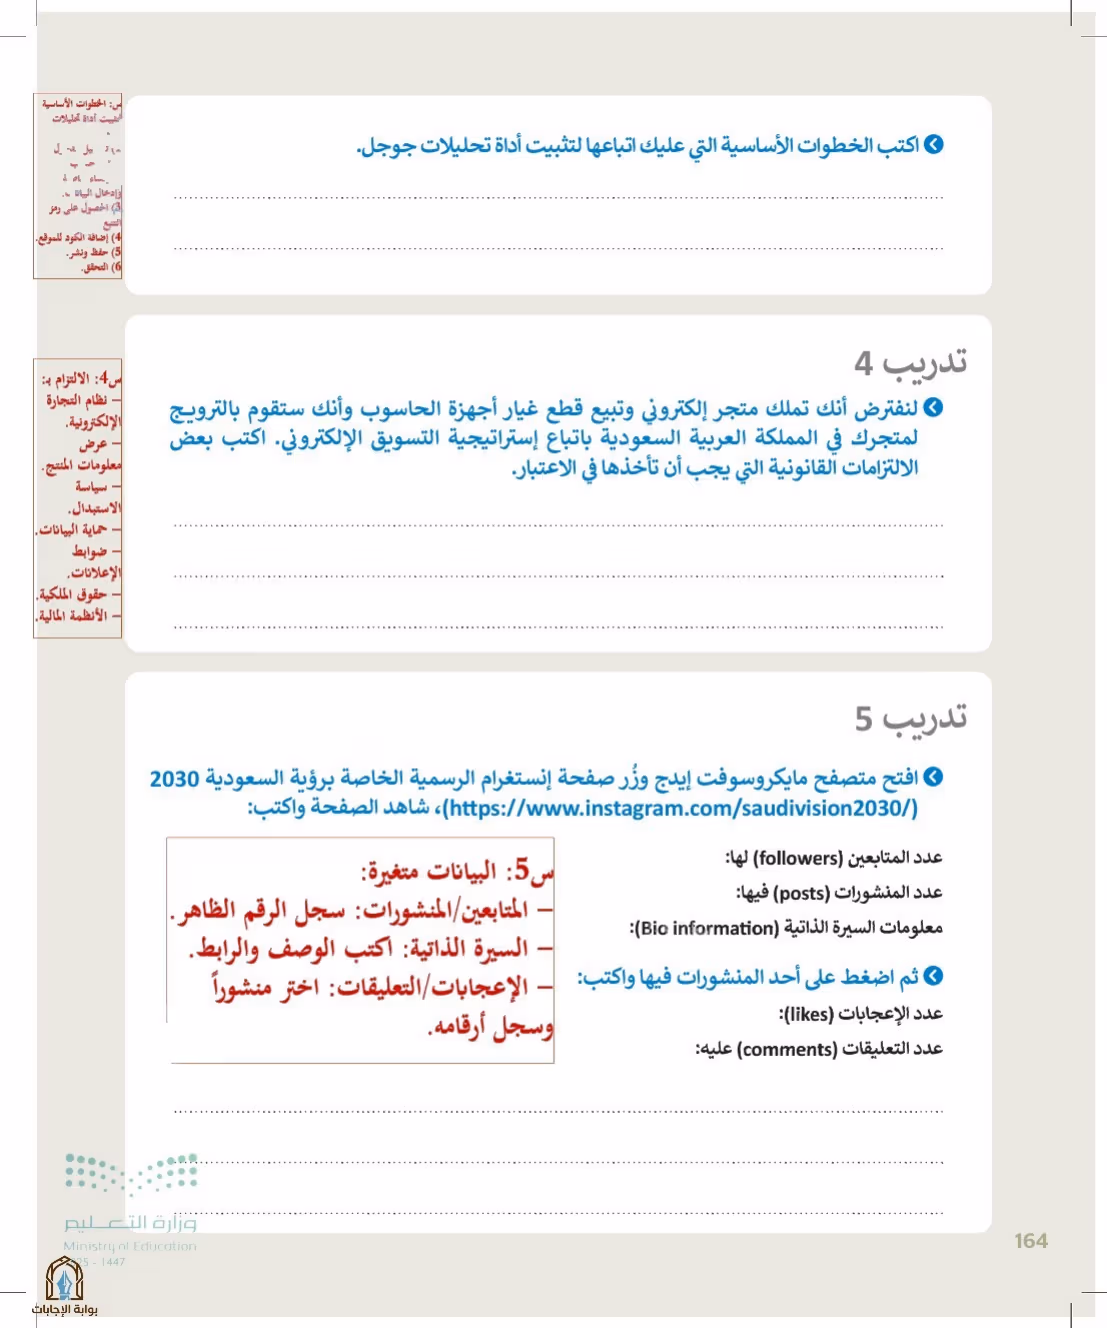 اكتب الخطوات الأساسية التي عليك اتباعها لتثبيت أداة تحليلات جوجل.
س: الخطوات الأساسية
لتثبيت أداة تحليلات
وإدخال البيانات.
3) الحصول على رمز
التتبع
4) إضافة الكود للموقع.
5) حفظ ونشر.
6) التحقق.
تدريب 4
لنفترض أنك تملك متجر إلكتروني وتبيع قطع غيار أجهزة الحاسوب وأنك ستقوم بالترويج
لمتجرك في المملكة العربية السعودية باتباع إستراتيجية التسويق الإلكتروني. اكتب بعض
الالتزامات القانونية التي يجب أن تأخذها في الاعتبار.
س4: الالتزام بـ:
– نظام التجارة
الإلكترونية.
– عرض
معلومات المنتج.
– سياسة
الاستبدال.
– حماية البيانات.
– ضوابط
الإعلانات.
– حقوق الملكية.
– الأنظمة المالية.
تدريب 5
افتح متصفح مايكروسوفت إيدج وزُر صفحة إنستغرام الرسمية الخاصة برؤية السعودية 2030
(https://www.instagram.com/saudivision2030/)، شاهد الصفحة واكتب:
عدد المتابعين (followers) لها:
عدد المنشورات (posts) فيها:
معلومات السيرة الذاتية (Bio information):
ثم اضغط على أحد المنشورات فيها واكتب:
عدد الإعجابات (likes):
عدد التعليقات (comments) عليه:
س5: البيانات متغيرة:
– المتابعين/المنشورات: سجل الرقم الظاهر.
– السيرة الذاتية: اكتب الوصف والرابط.
– الإعجابات/التعليقات: اختر منشوراً
وسجل أرقامه.
وزارة التعليم
Ministry of Education
- 1447
164
بوابة الإجابات